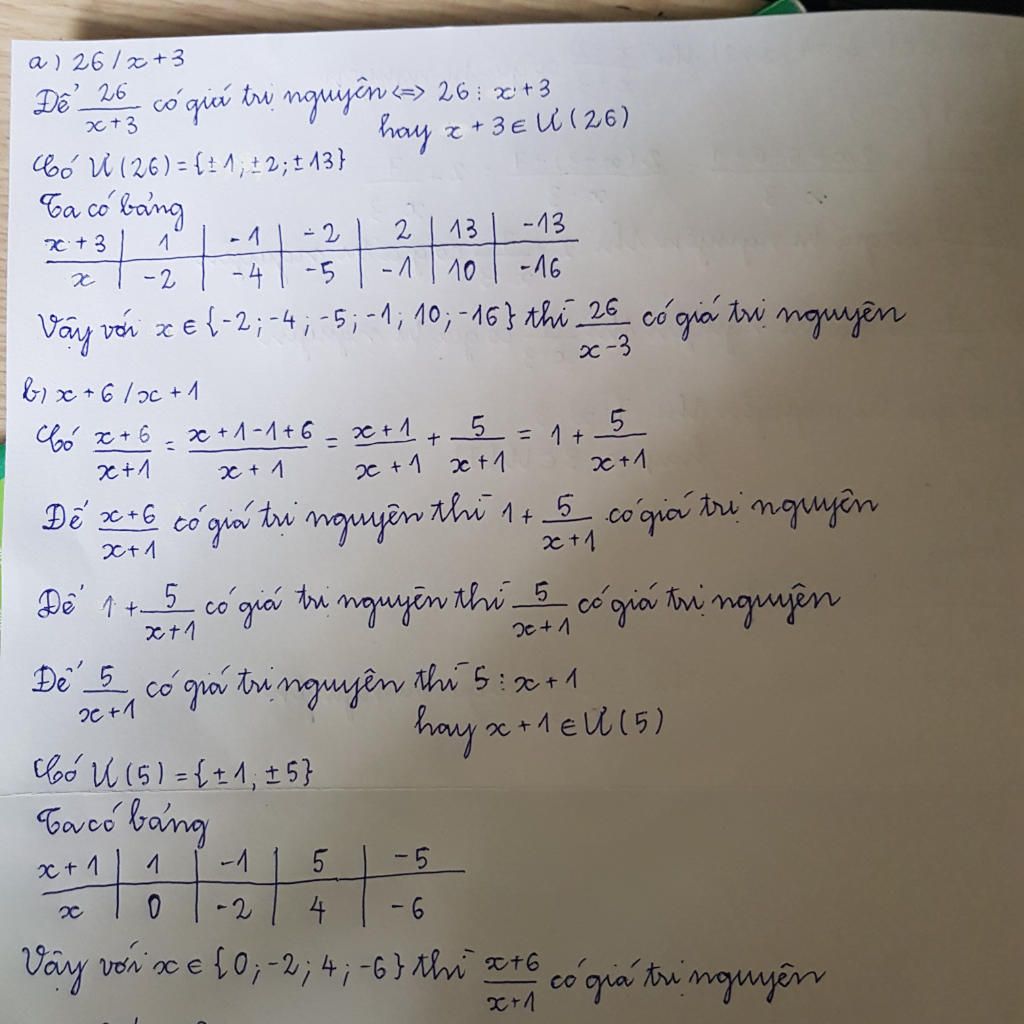 a) 26/x+3
Để 26/(x+3) có giá trị nguyên <=> 26 ⋮ x+3
hay x+3 ∈ Ư(26)
Có Ư(26)={±1;±2;±13}
Ta có bảng
x+3 | 1 | -1 | -2 | 2 | 13 | -13
x | -2 | -4 | -5 | -1 | 10 | -16
Vậy với x ∈ {-2;-4;-5;-1;10;-16} thì 26/(x-3) có giá trị nguyên
b) x+6/x+1
Có (x+6)/(x+1) = (x+1-1+6)/(x+1) = (x+1)/(x+1) + 5/(x+1) = 1 + 5/(x+1)
Để (x+6)/(x+1) có giá trị nguyên thì 1 + 5/(x+1) có giá trị nguyên
Để 1 + 5/(x+1) có giá trị nguyên thì 5/(x+1) có giá trị nguyên
Để 5/(x+1) có giá trị nguyên thì 5 ⋮ x+1
hay x+1 ∈ Ư(5)
Có Ư(5)={±1;±5}
Ta có bảng
x+1 | 1 | -1 | 5 | -5
x | 0 | -2 | 4 | -6
Vậy với x ∈ {0;-2;4;-6} thì (x+6)/(x+1) có giá trị nguyên